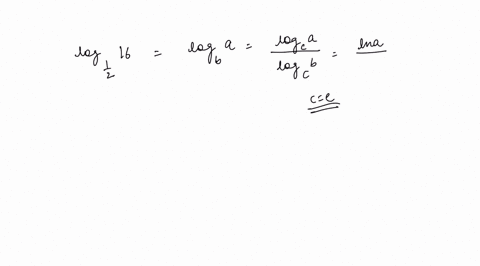 log_{1/2} 16 = log_b a = \frac{log_c a}{log_c b} = \frac{ln a}{}
c=e